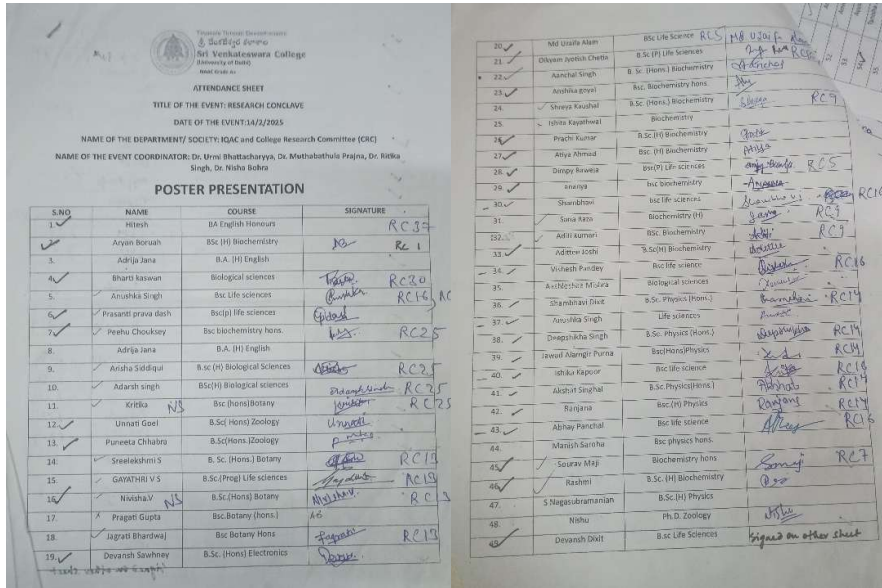 శ్రీ వేంకటేశ్వర కళాశాల
Sri Venkateswara College
(University of Delhi)
NAAC Grade A+
ATTENDANCE SHEET
TITLE OF THE EVENT: RESEARCH CONCLAVE
DATE OF THE EVENT:14/2/2025
NAME OF THE DEPARTMENT/ SOCIETY: IQAC and College Research Committee (CRC)
NAME OF THE EVENT COORDINATOR: Dr. Urmi Bhattacharyya, Dr. Muthabathula Prajna, Dr. Ritika
Singh, Dr. Nisha Bohra
POSTER PRESENTATION
S.NO NAME COURSE SIGNATURE
1. Hitesh BA English Honours RC 37
Aryan Boruah BSc (H) Biochemistry RC 1
3. Adrija Jana B.A. (H) English
4. Bharti kaswan Biological sciences RC30
5. Anushka Singh Bsc Life sciences RC16
6. Prasanti prava dash Bsc(p) life sciences
7. Peehu Chouksey Bsc biochemistry hons. RC25
8. Adrija Jana B.A. (H) English
9. Arisha Siddiqui B.sc (H) Biological Sciences RC25
10. Adarsh singh BSc(H) Biological sciences RC25
11. Kritika NS Bsc (hons)Botany RC25
12. Unnati Goel B.Sc( Hons) Zoology Unnati
13. Puneeta Chhabra B.Sc(Hons )Zoology
14. Sreelekshmi S B. Sc. (Hons.) Botany RC19
15. GAYATHRI V S B.Sc.(Prog) Life sciences RC19
16. Nivisha.V NS B.Sc.(Hons) Botany
17. Pragati Gupta Bsc.Botany (hons.) Ab
18. Jagrati Bhardwaj Bsc Botany Hons Jagrati RC13
19. Devansh Sawhney B.Sc. (Hons) Electronics
20. Md Uzaifa Alam BSc Life Science RC5
21. Dikyam Jyotish Chette B.Sc (P) Life Sciences
22. Aanchal Singh B. Sc. (Hons.) Biochemistry Aanchal
23. Anshika goyal Bsc. Biochemistry hons.
24. Shreya Kaushal B.Sc. (Hons.) Biochemistry RC9
25. Ishita Kayathwal Biochemistry
26. Prachi Kumar B.Sc.(H) Biochemistry
27. Atiya Ahmad Bsc (H) Biochemistry Atiya
28. Dimpy Raweja Bsc(P) Life sciences RC5
29. ananya bsc biochemistry Ananya
30. Shambhavi bsc life sciences RC16
31. Sana Raza Biochemistry (H) RC9
32. Aditi kumari B.Sc. Biochemistry RC9
33. Adittee Joshi B.Sc(H) Biochemistry
34. Vishesh Pandey Bsc life science RC16
35. Aashlesha Mishra Biological sciences
36. Shambhavi Dixit B.Sc. Physics (Hons.) RC14
37. Anushka Singh Life sciences
38. Deepshikha Singh B.Sc. Physics (Hons.) Deepshikha RC14
39. Jawad Alamgir Purna Bsc(Hons)Physics RC14
40. Ishika Kapoor Bsc life science RC16
41. Akshat Singhal B.Sc.Physics(Hons) RC14
42. Ranjana Bsc.(H) Physics Ranjana RC14
43. Abhay Panchal Bsc life science Abhay RC16
44. Manish Saroha Bsc physics hons.
45. Sourav Maji Biochemistry hons RC7
46. Rashmi B.Sc. (H) Biochemistry
47. S Nagasubramanian B.Sc.(H) Physics
48. Nishu Ph.D. Zoology
49. Devansh Dixit B.sc Life Sciences Signed on other sheet